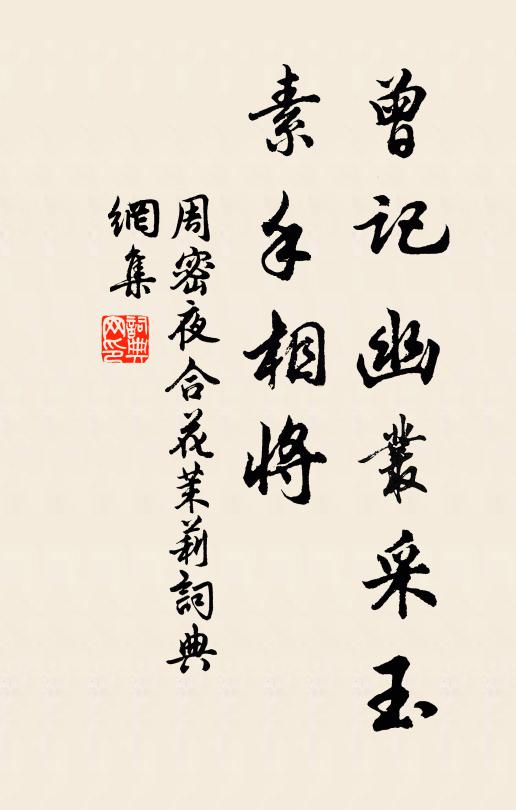 曾記幽叢采玉
素手相將
周密夜合花茉莉詞典
網集
詞典网印